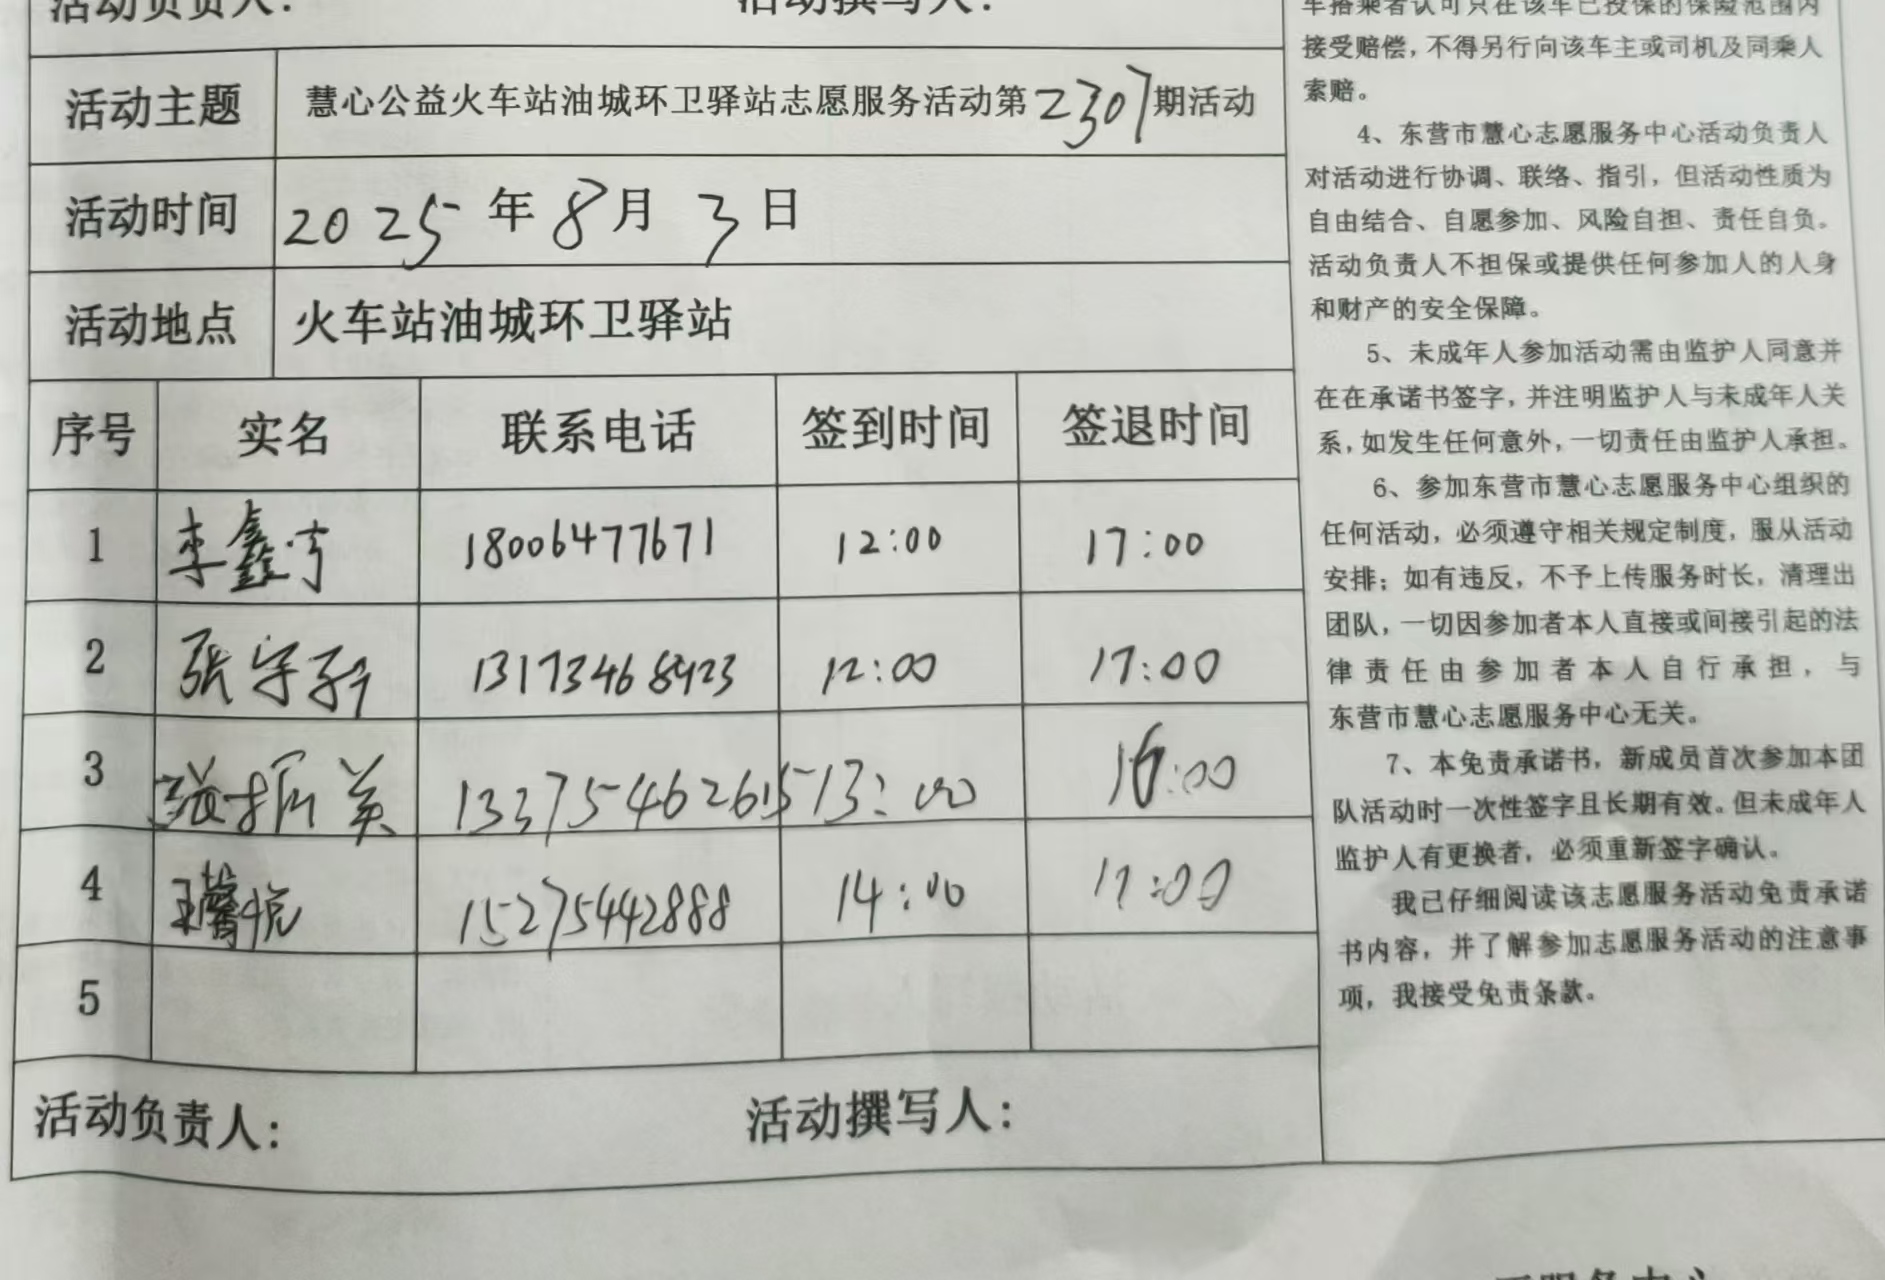 活动负责人：　活动撰写人：
活动主题　慧心公益火车站油城环卫驿站志愿服务活动第2307期活动
活动时间　2025年8月3日
活动地点　火车站油城环卫驿站
序号　实名　联系电话　签到时间　签退时间
1　李鑫宁　18006477671　12:00　17:00
2　张宇　13173468923　12:00　17:00
3　张振英　13375462615　13:00　16:00
4　王馨悦　15275442888　14:00　17:00
5
活动负责人：　活动撰写人：
车搭乘者认可只在该车已投保的保险范围内
接受赔偿，不得另行向该车主或司机及同乘人
索赔。
4、东营市慧心志愿服务中心活动负责人
对活动进行协调、联络、指引，但活动性质为
自由结合、自愿参加、风险自担、责任自负。
活动负责人不担保或提供任何参加人的人身
和财产的安全保障。
5、未成年人参加活动需由监护人同意并
在在承诺书签字，并注明监护人与未成年人关
系，如发生任何意外，一切责任由监护人承担。
6、参加东营市慧心志愿服务中心组织的
任何活动，必须遵守相关规定制度，服从活动
安排；如有违反，不予上传服务时长，清理出
团队，一切因参加者本人直接或间接引起的法
律责任由参加者本人自行承担，与
东营市慧心志愿服务中心无关。
7、本免责承诺书，新成员首次参加本团
队活动时一次性签字且长期有效。但未成年人
监护人有更换者，必须重新签字确认。
我已仔细阅读该志愿服务活动免责承诺
书内容，并了解参加志愿服务活动的注意事
项，我接受免责条款。
服务中心